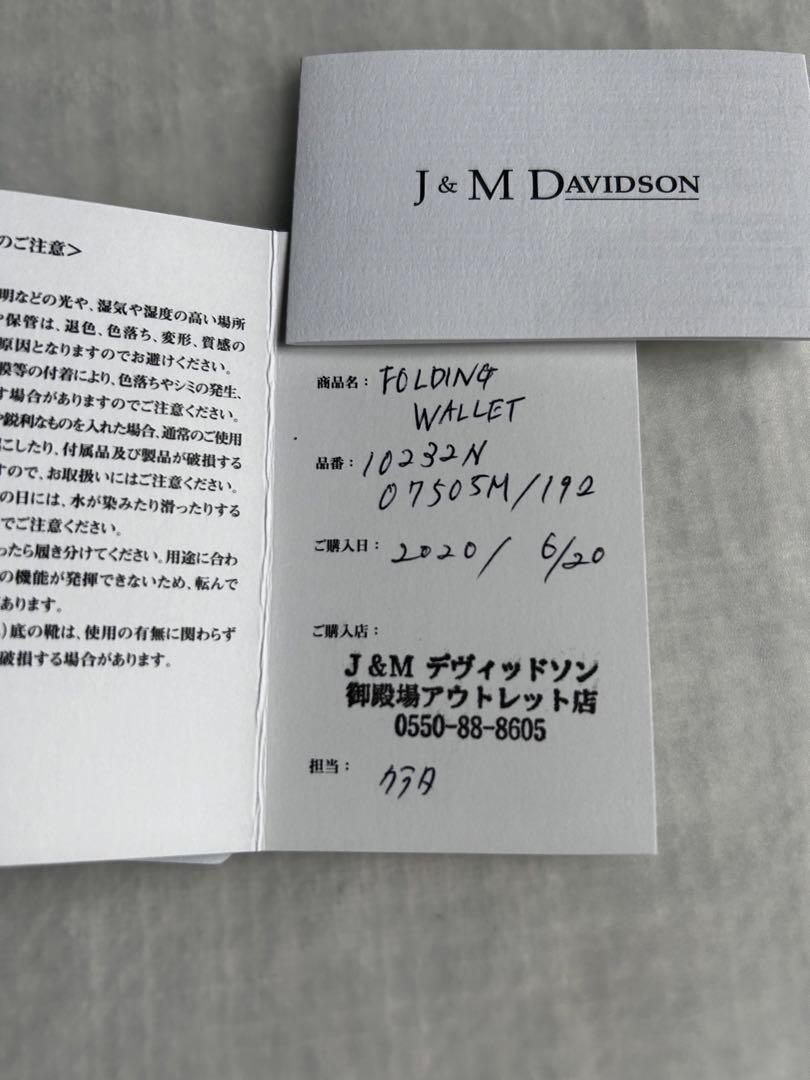 J & M DAVIDSON
のご注意＞
明などの光や、湿気や湿度の高い場所
や保管は、退色、色落ち、変形、質感の
原因となりますのでお避けください。
膜等の付着により、色落ちやシミの発生、
す場合がありますのでご注意ください。
や鋭利なものを入れた場合、通常のご使用
にしたり、付属品及び製品が破損する
すので、お取扱いにはご注意ください。
の日には、水が染みたり滑ったりする
でご注意ください。
ったら履き分けてください。用途に合わ
の機能が発揮できないため、転んで
があります。
）底の靴は、使用の有無に関わらず
破損する場合があります。
商品名： FOLDING
WALLET
品番： 10232N
07505M/192
ご購入日： 2020/ 6/20
ご購入店：
J&M デヴィッドソン
御殿場アウトレット店
0550-88-8605
担当： クラタ